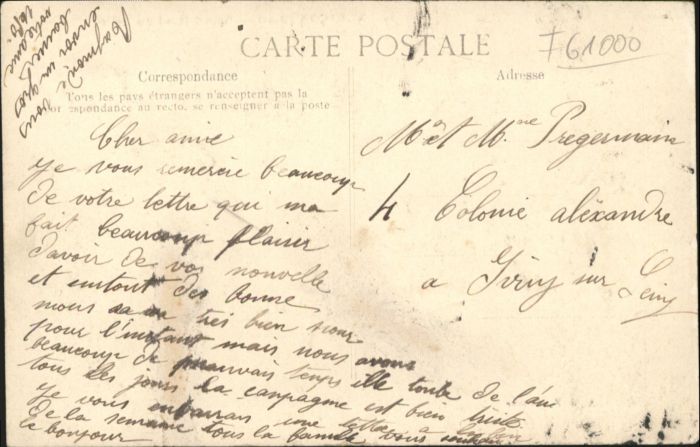 CARTE POSTALE
Correspondance
Tous les pays étrangers n'acceptent pas la
correspondance au recto, se renseigner à la poste
Adresse
I 61000
Raymonde vous
envoi un gros
baiser
Cher amie
Je vous remercie beaucoup
de votre lettre qui ma
fait beaucoup plaisir
d'avoir de vos nouvelle
et surtout des bonne
nous sa va très bien pour
pour l'instant mais nous avons
beaucoup de mauvais temps elle tombe de l'eau
tous les jours la campagne est bien triste
Je vous une
de la semaine tous la famille vous
le bonjour
Mr et Mme Pregermain
4 Colonie aléxandre
a Ivry sur